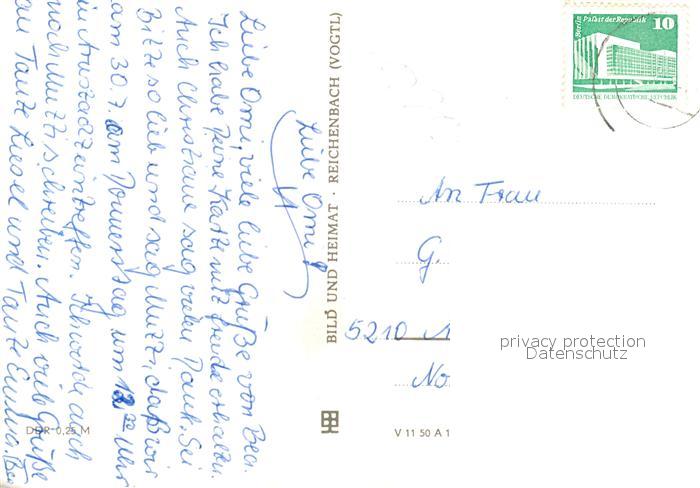 Liebe Omi!
Liebe Omi, viele liebe Grüße von Bea.
Ich habe Deine Karte mit Freude erhalten.
Auch Christiane sag vielen Dank. Sei
Bitte so lieb und sag Mutti, daß wir
am 30.7. am Donnerstag um 13.00 Uhr
in Arnstadt eintreffen. Ich werde auch
noch Mutti schreiben. Auch viele Grüße
an Tante Liesel und Tante Emma.
DDR 0,25 M
BILD UND HEIMAT · REICHENBACH (VOGTL)
V 11 50 A 1
Berlin Palast der Republik 10
DEUTSCHE DEMOKRATISCHE REPUBLIK
An Frau
G.
5210 A
No
privacy protection
Datenschutz